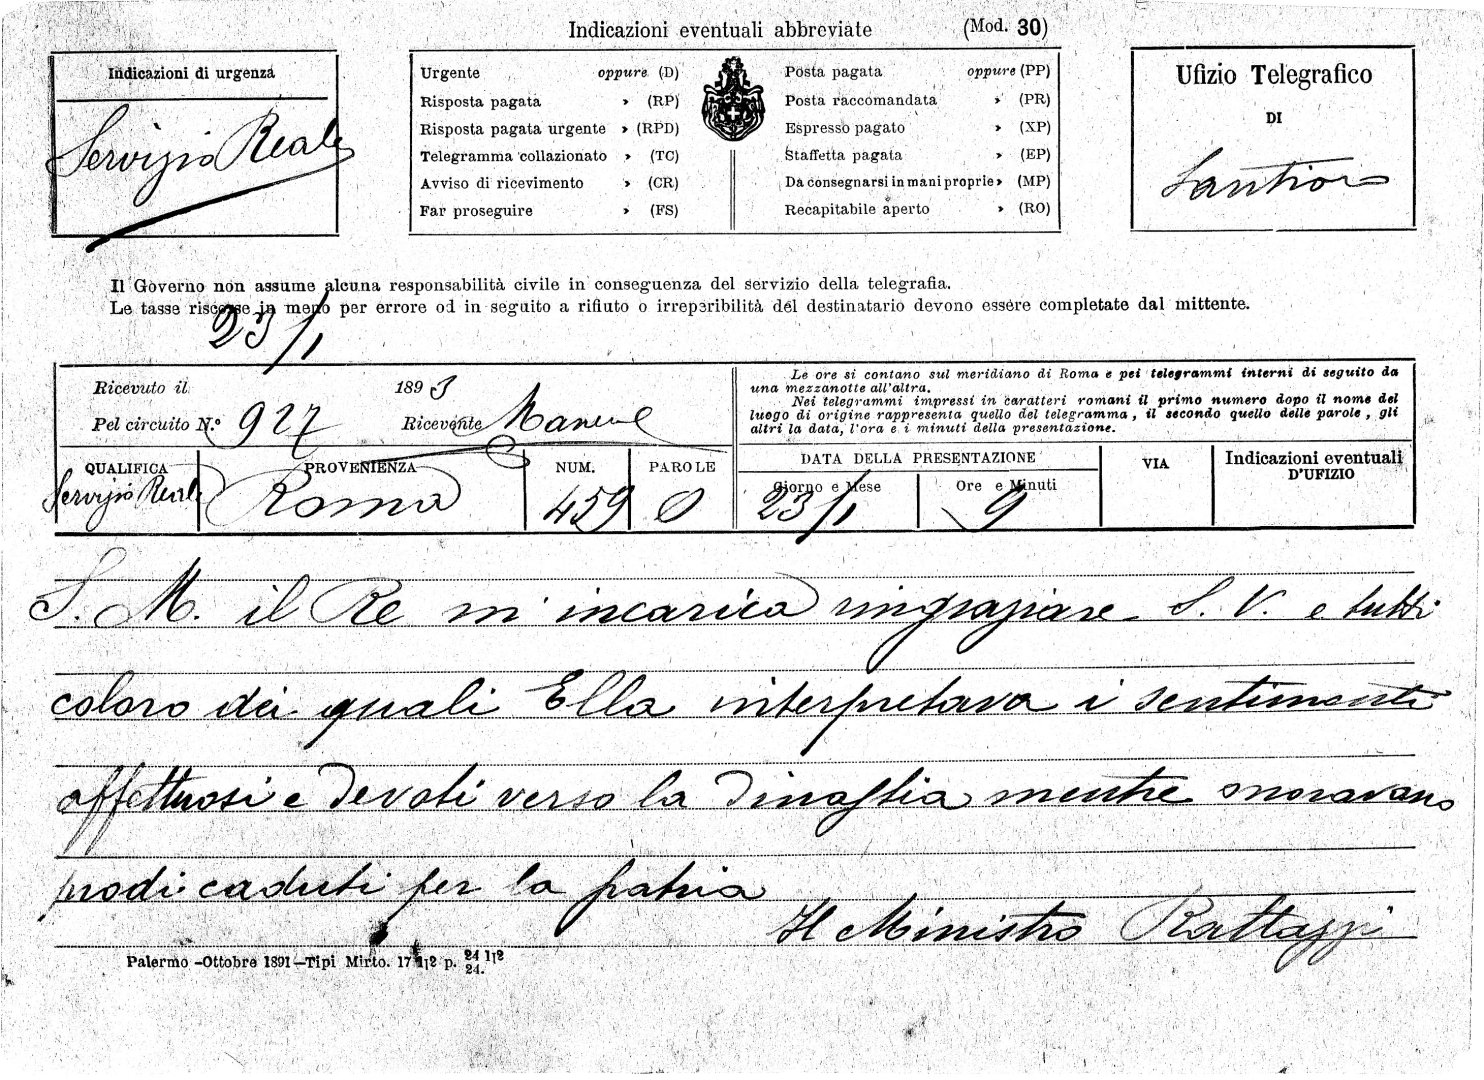 Indicazioni eventuali abbreviate (Mod. 30)
Indicazioni di urgenza
Servizio Reale
Urgente oppure (D)
Risposta pagata » (RP)
Risposta pagata urgente » (RPD)
Telegramma collazionato » (TC)
Avviso di ricevimento » (CR)
Far proseguire » (FS)
Posta pagata oppure (PP)
Posta raccomandata » (PR)
Espresso pagato » (XP)
Staffetta pagata » (EP)
Da consegnarsi in mani proprie » (MP)
Recapitabile aperto » (RO)
Ufizio Telegrafico
DI
Il Governo non assume alcuna responsabilità civile in conseguenza del servizio della telegrafia.
Le tasse riscosse in meno per errore od in seguito a rifiuto o irreperibilità del destinatario devono essere completate dal mittente.
23/1
Ricevuto il 1893
Pel circuito N.º 927 Ricevente
Le ore si contano sul meridiano di Roma e pei telegrammi interni di seguito da
una mezzanotte all'altra.
Nei telegrammi impressi in caratteri romani il primo numero dopo il nome del
luogo di origine rappresenta quello del telegramma, il secondo quello delle parole, gli
altri la data, l'ora e i minuti della presentazione.
QUALIFICA PROVENIENZA NUM. PAROLE DATA DELLA PRESENTAZIONE VIA Indicazioni eventuali
D'UFIZIO
Giorno e Mese Ore e Minuti
Servizio Reale Roma 459 0 23/1 9
S. M. il Re m'incarica ringraziare S. V. e tutti
coloro dei quali Ella interpretava i sentimenti
affettuosi e devoti verso la Dinastia mentre onoravano
prodi caduti per la patria
Il Ministro Rattazzi
Palermo – Ottobre 1891 – Tipi Mirto. 17 1|2 p. 24 1|2
24.